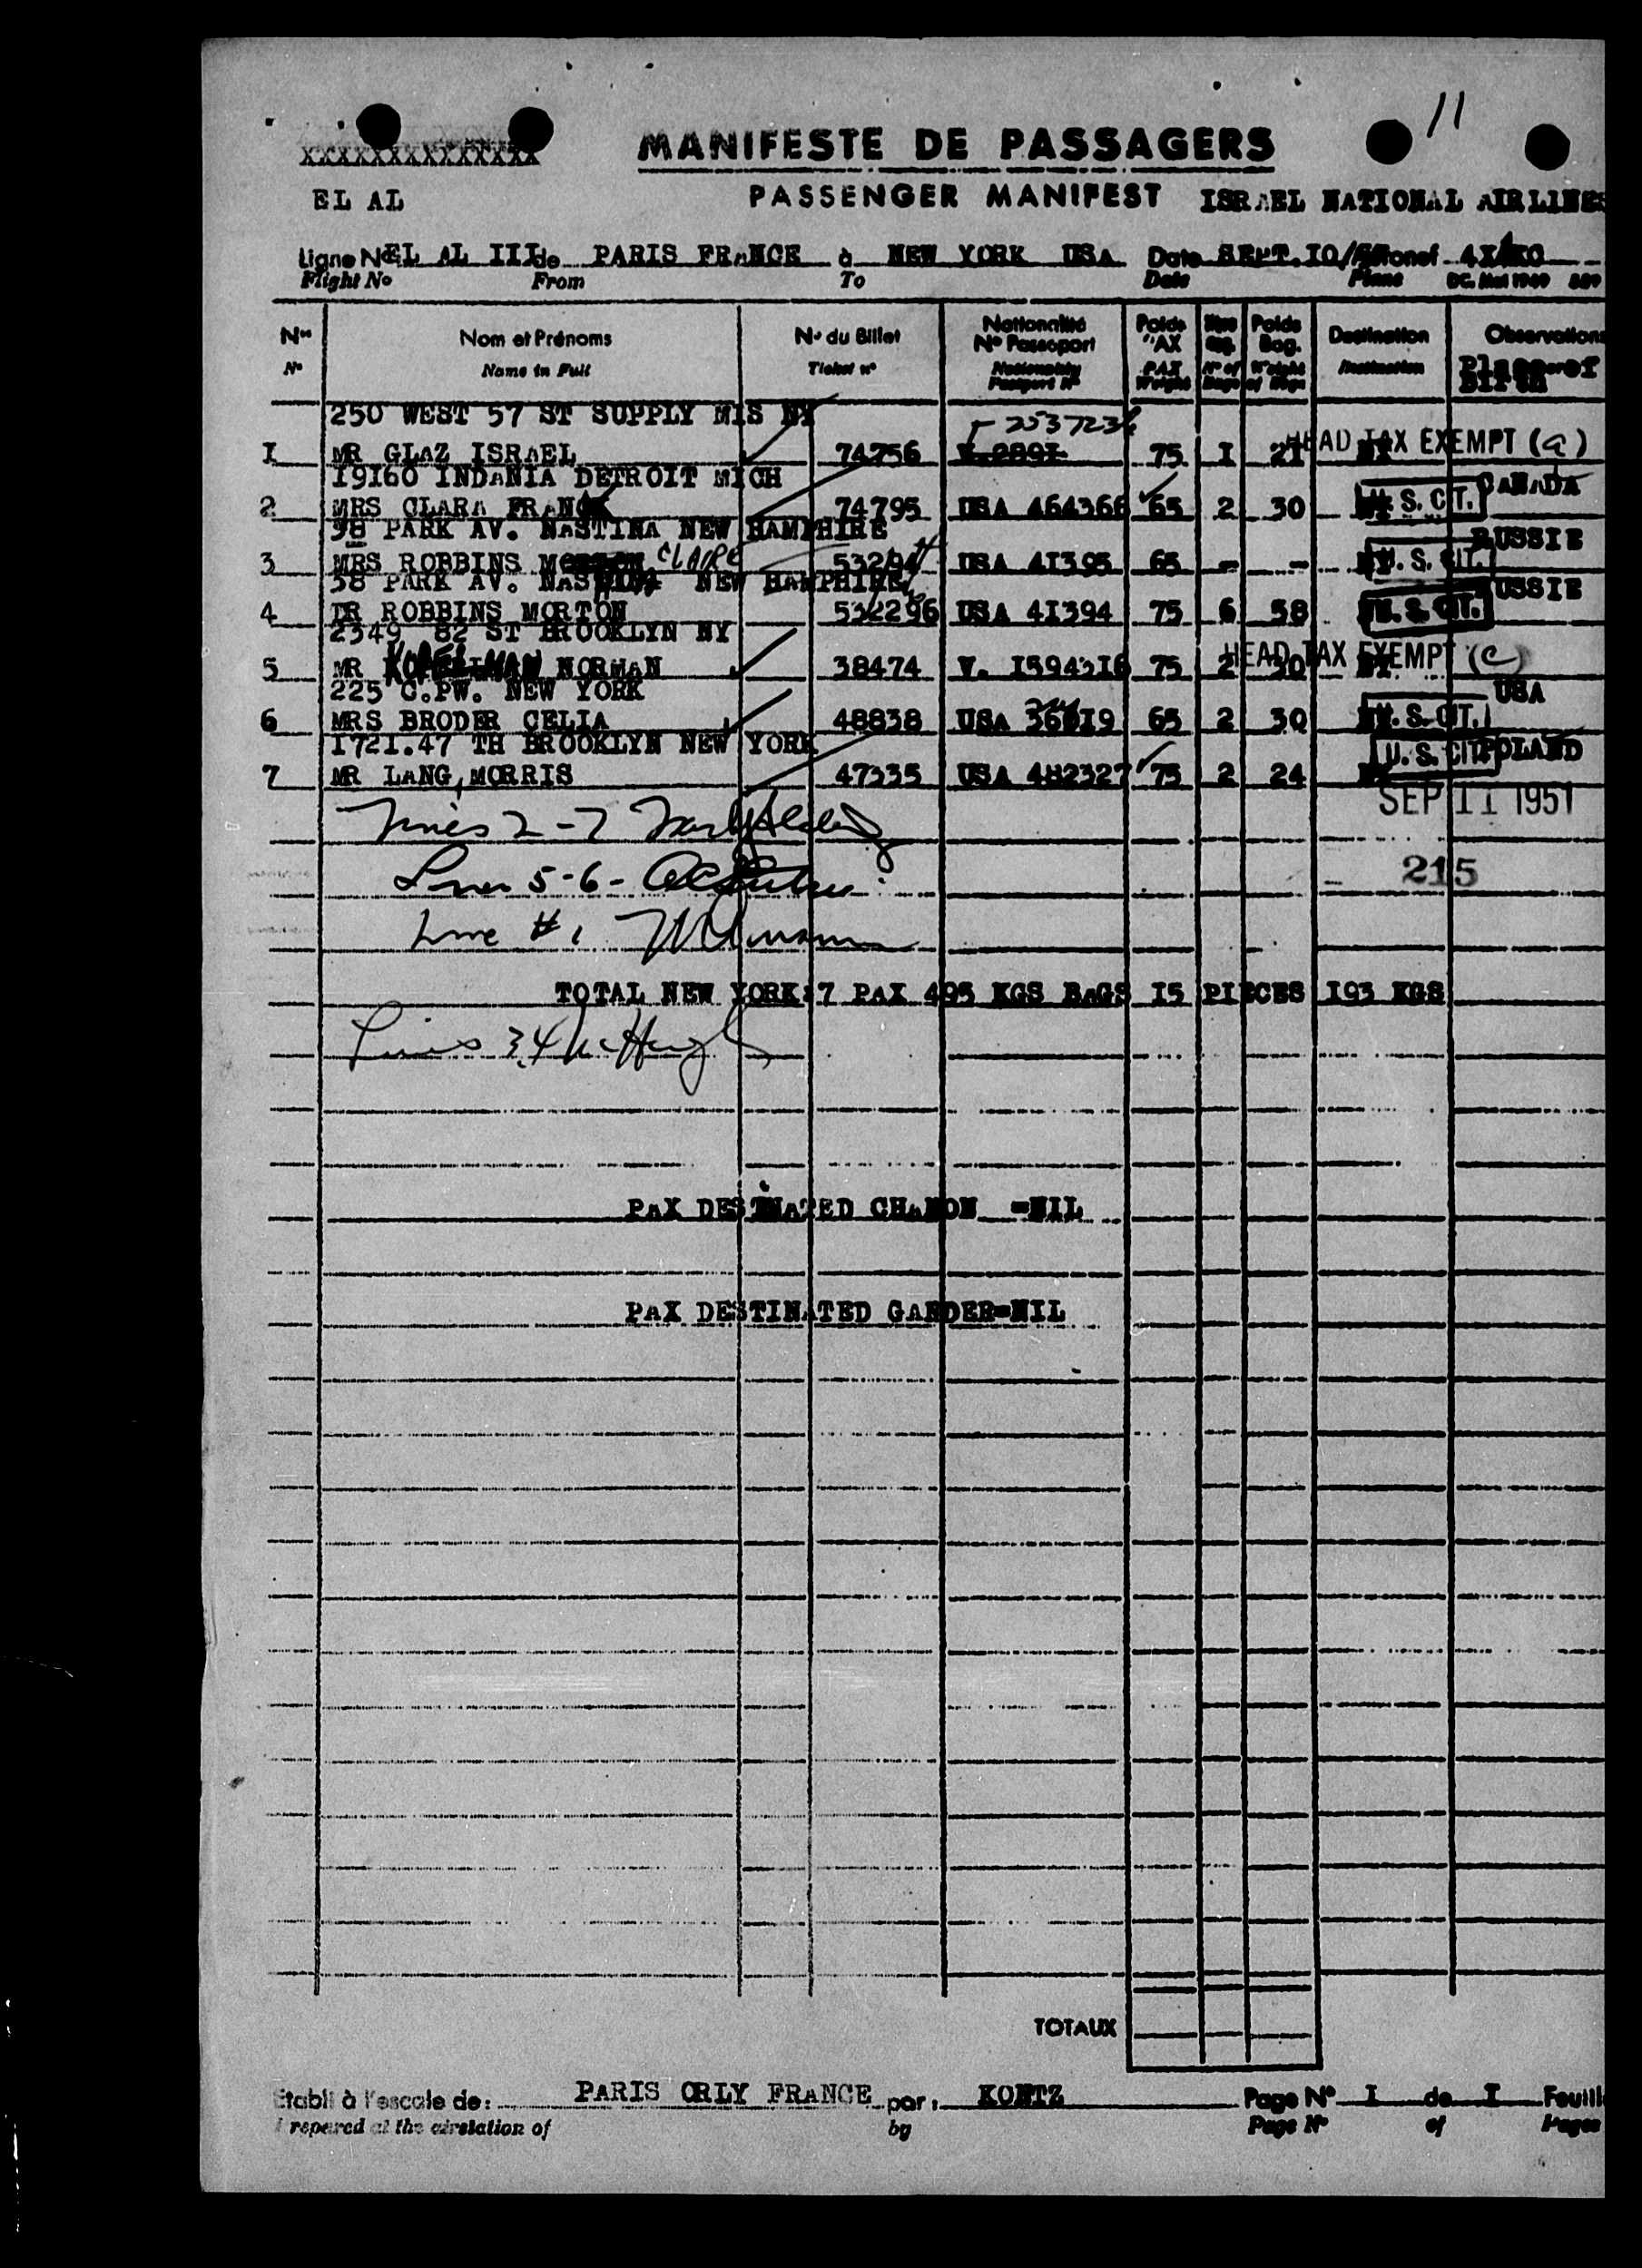 11
XXXXXXXXXXXXXX MANIFESTE DE PASSAGERS
EL AL PASSENGER MANIFEST ISRAEL NATIONAL AIRLINES
Ligne No EL AL III de PARIS FRANCE à NEW YORK USA Date SEPT.IO/
Flight No From To Date Plane
Nos Nom et Prénoms No du Billet Nationalité No Passeport Poids PAX Poids Bag. Destination Observations
No Name in Full Ticket no Nationality Passport No PAX Weight No of Bags Weight of Bags Destination Place of Birth
250 WEST 57 ST SUPPLY MIS NY 2537234
I MR GLAZ ISRAEL 74756 V.289I 75 I 21 HEAD TAX EXEMPT (a)
19160 INDANIA DETROIT MICH
2 MRS CLARA FRANCK 74795 USA 464366 65 2 30 U.S. CIT. CANADA
98 PARK AV. NASTINA NEW HAMPHIRE
3 MRS ROBBINS CLAIRE 53294 USA 4I395 65 - - U.S. CIT. RUSSIE
58 PARK AV. NEW HAMPHIRE
4 DR ROBBINS MORTON 532296 USA 4I394 75 6 58 U.S. CIT. RUSSIE
2349 82 ST BROOKLYN NY
5 MR NORMAN 38474 V. I594316 75 2 30 HEAD TAX EXEMPT (c)
225 C.PW. NEW YORK
6 MRS BRODER CELIA 48838 USA 65 2 30 U.S. CIT. USA
1721.47 TH BROOKLYN NEW YORK
7 MR LANG, MORRIS 47335 USA 482327 75 2 24 U.S. CIT. POLAND
SEP 11 1951
Lines 2-7
215
Lines 5-6-
Line #1
TOTAL NEW YORK:7 PAX 495 KGS BAGS I5 PIECES I93 KGS
Lines 3,4 McHugh
PAX DESTINATED CHANON =NIL
PAX DESTINATED GANDER=NIL
TOTAUX
Etabli à l'escale de: PARIS ORLY FRANCE par: KONTZ Page No I de I Feuill
repared at the airstation of by Page No of Pages